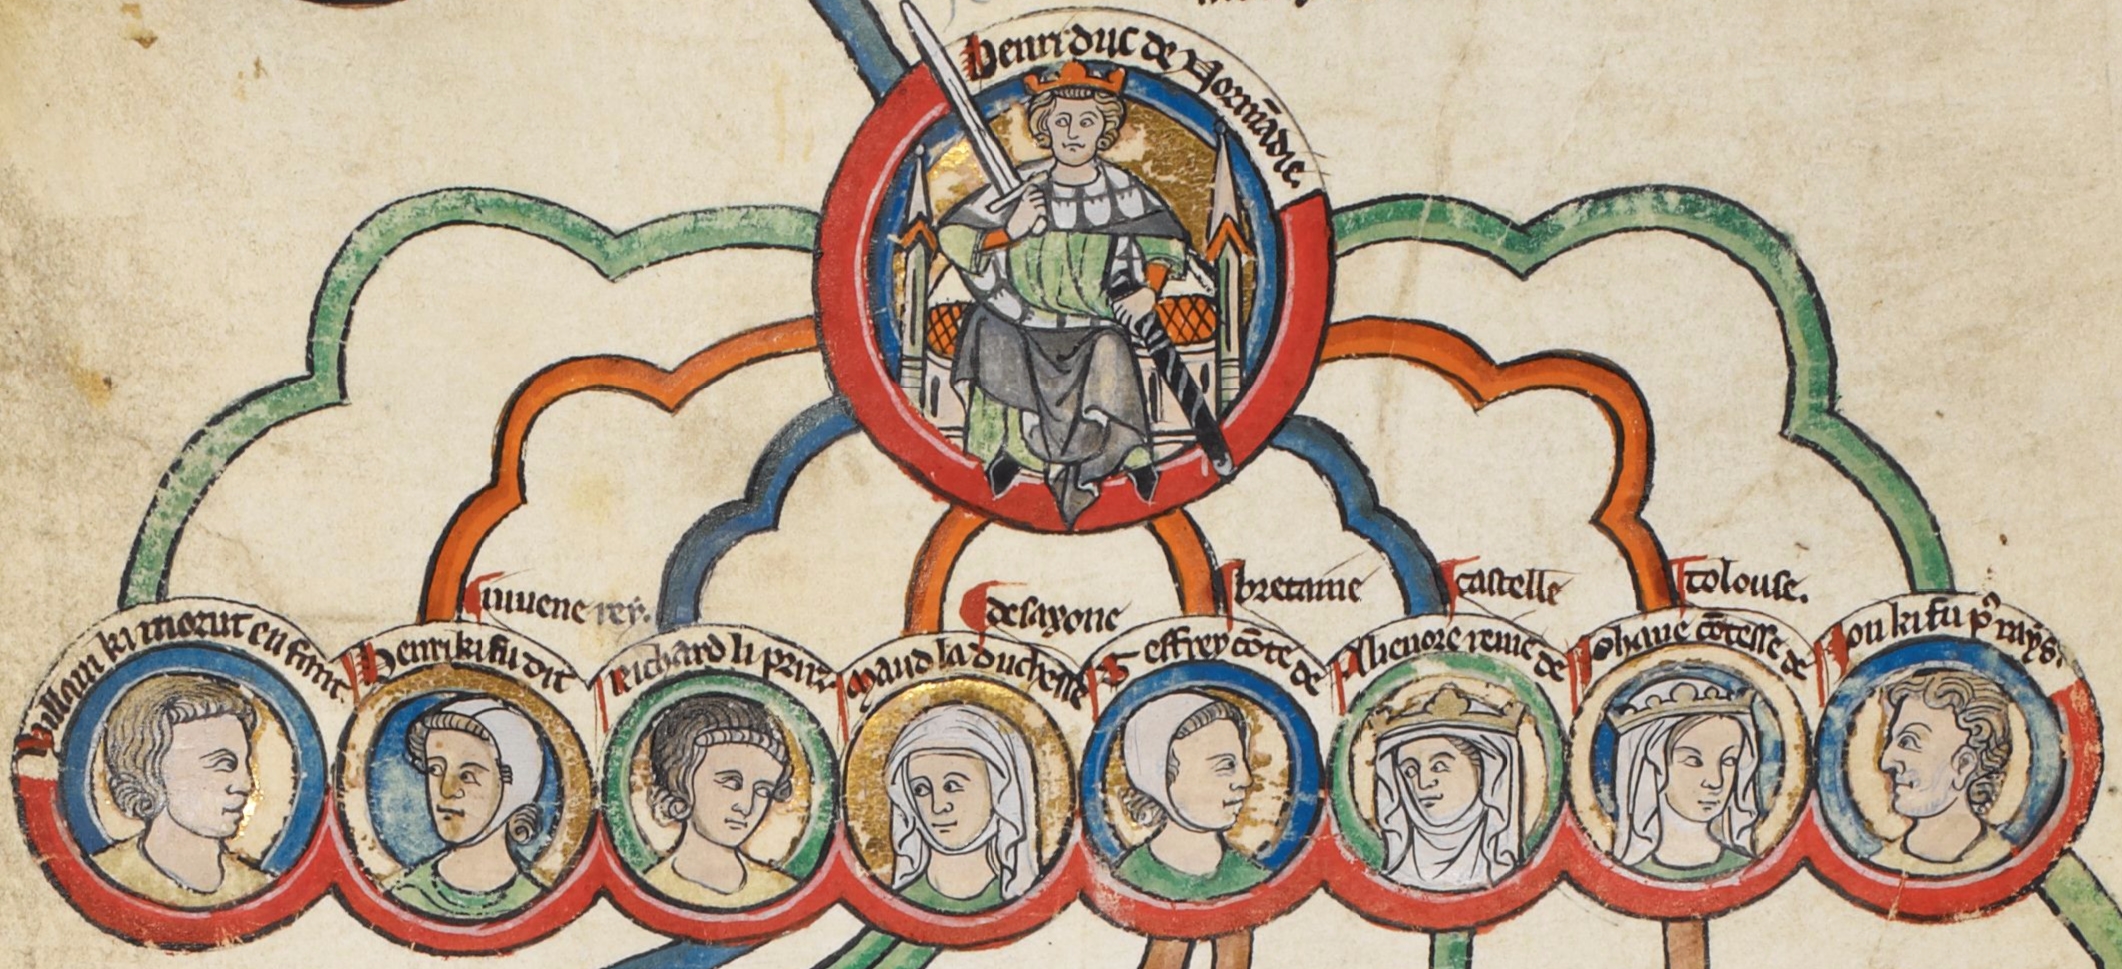 Henri duc de Normãdie.
Willam ki morut en funt
Henri ki fu dit
iuuene rey.
Richard li priz
Maud la duchesse
de saxone
Geffrey cõte de
bretaine
Alienore reine de
castelle
Iohane cõtesse de
tolouse.
Ion ki fu pͦ rays.